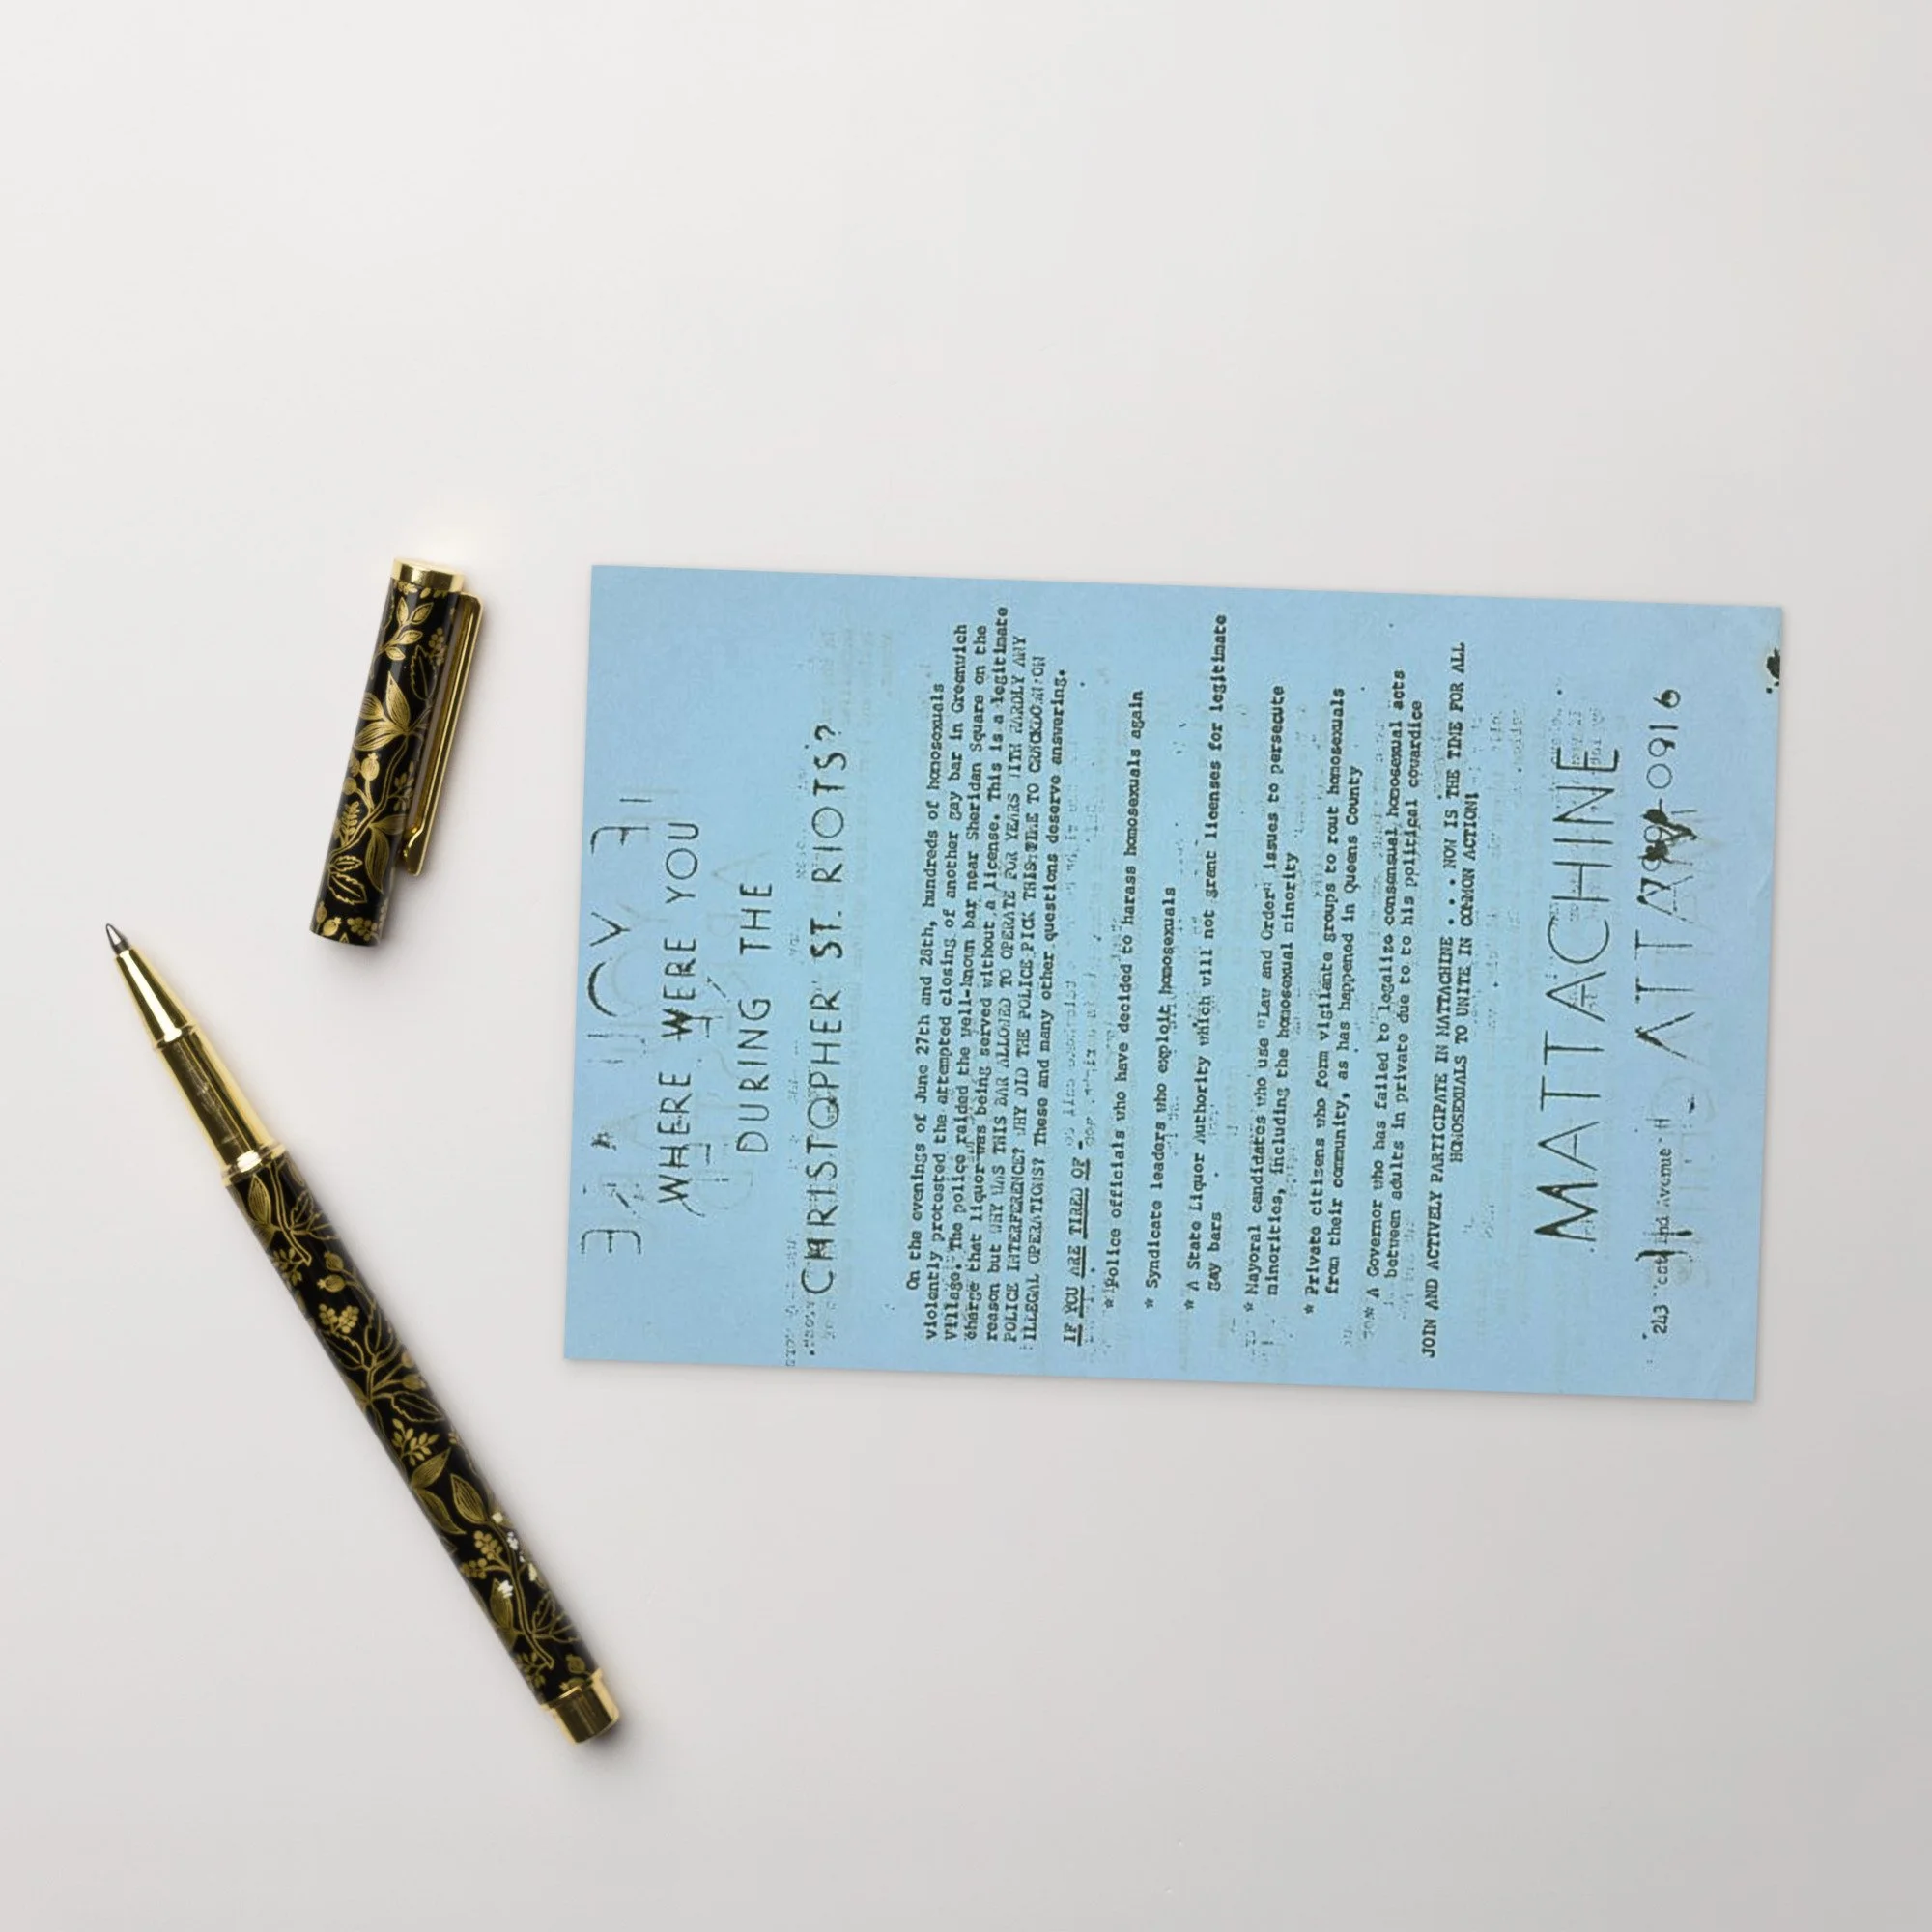 WHERE WERE YOU
DURING THE
CHRISTOPHER ST. RIOTS?
On the evenings of June 27th and 28th, hundreds of homosexuals
violently protested the attempted closing of another gay bar in Greenwich
Village. The police raided the well-known bar near Sheridan Square on the
charge that liquor was being served without a license. This is a legitimate
reason but WHY WAS THIS BAR ALLOWED TO OPERATE FOR YEARS WITH HARDLY ANY
POLICE INTERFERENCE? WHY DID THE POLICE PICK THIS TIME TO CRACKDOWN ON
ILLEGAL OPERATIONS? These and many other questions deserve answering.
IF YOU ARE TIRED OF -
* Police officials who have decided to harass homosexuals again
* Syndicate leaders who exploit homosexuals
* A State Liquor Authority which will not grant licenses for legitimate
gay bars
* Mayoral candidates who use "Law and Order" issues to persecute
minorities, including the homosexual minority
* Private citizens who form vigilante groups to rout homosexuals
from their community, as has happened in Queens County
* A Governor who has failed to legalize consensual homosexual acts
between adults in private due to to his political cowardice
JOIN AND ACTIVELY PARTICIPATE IN MATTACHINE . . . . NOW IS THE TIME FOR ALL
HOMOSEXUALS TO UNITE IN COMMON ACTION!
MATTACHINE
243 End Avenue 0916